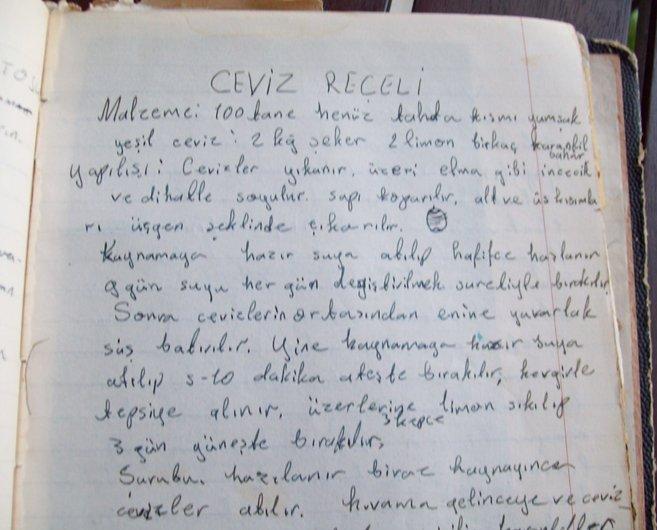 CEVİZ REÇELİ
Malzeme: 100 tane henüz tahda kısmı yumşak
yeşil ceviz: 2 kg şeker 2 limon birkaç karanfil
bahar
Yapılışı: Cevizler yıkanır, üzeri elma gibi incecik
ve dikatle soyulur. sapı koparılır, alt ve üs kısımla
rı üçgen şeklinde çıkarılır.
Kaynamaya hazır suya atılıp hafifce haşlanır
9 gün suyu her gün değiştirilmek suretiyle bırakılır
Sonra cevizlerin ortasından enine yuvarlak
şiş batırılır. Yine kaynamaga hazır suya
atılıp 5-10 dakika ateşte bırakılır, kevgirle
tepsiye alınır, üzerlerine limon sıkılıp
3 kepçe
3 gün güneşte bırakılır,
Şurubu, hazılanır biraz kaynayınca
cevizler atılır. kıvama gelinceye ve ceviz-